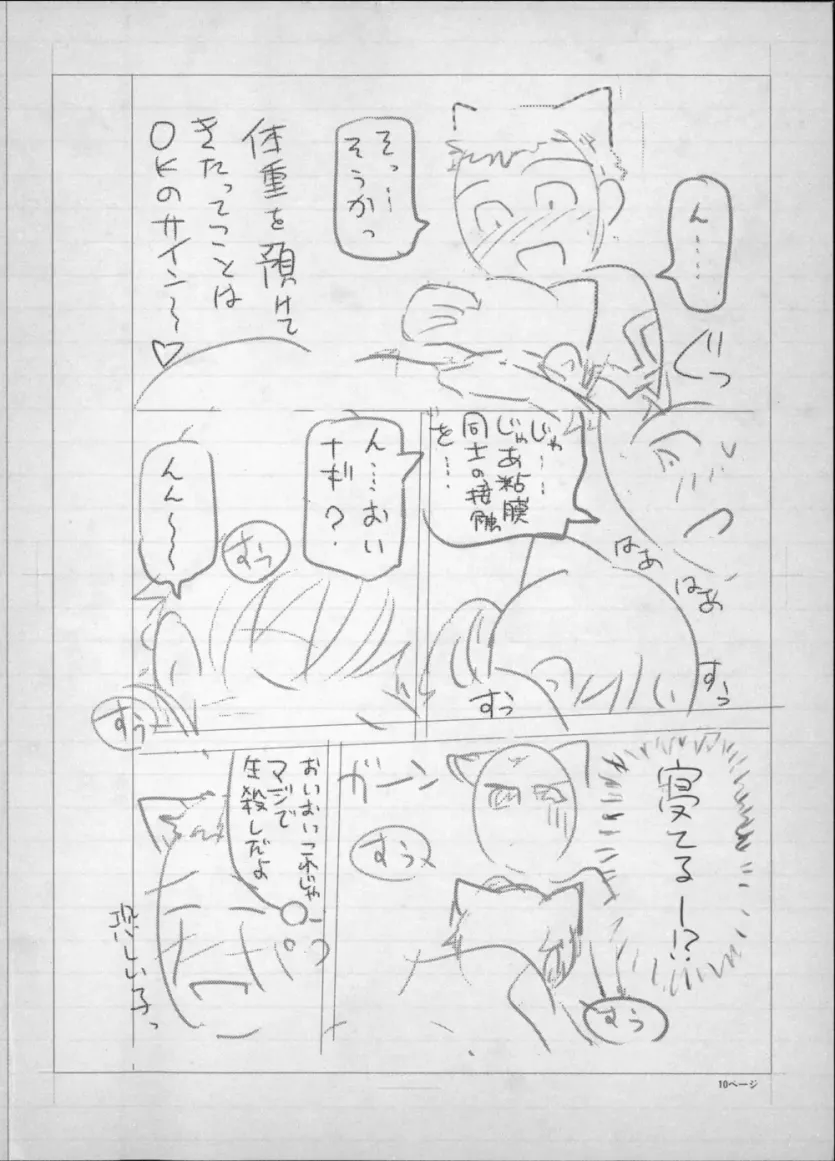 ん……
ぐっ
そっ…
そうかっ
体重を預けて
きたってことは
OKのサイン～♡
じゃ……
じゃあ粘膜
同士の接触
を…
はあ
はあ
すぅっ
すぅっ
ん……おい
ナギ？
すぅっ
んん～～
すぅっ
寝てるー!?
ガーン
すぅっ
すぅっ
おいおいこれじゃ
マジで
生殺しだよ
恐しい子っ
10ページ